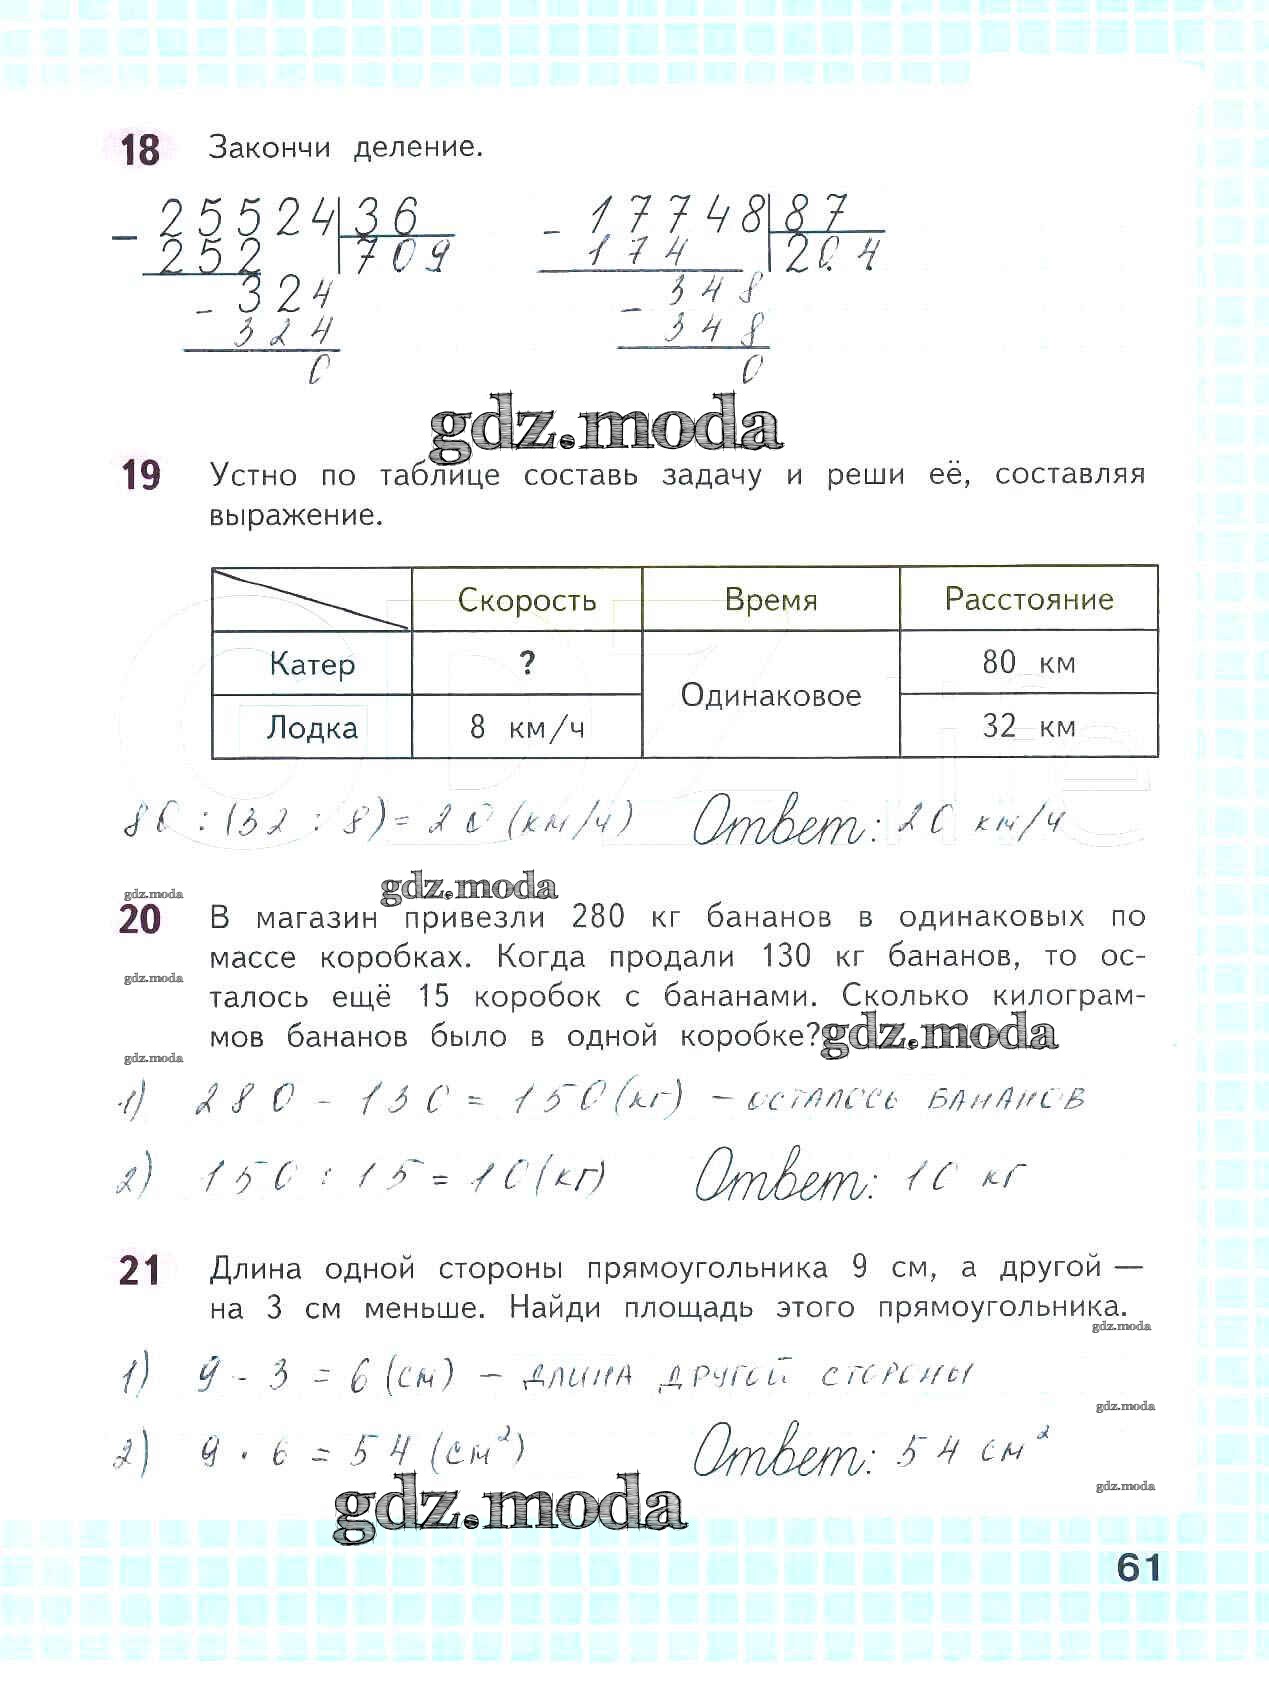 18 Закончи деление.
- 25524 | 36
252 | 709
- 324
324
0
- 17748 | 87
174 | 204
- 348
348
0
gdz.moda
19 Устно по таблице составь задачу и реши её, составляя
выражение.
Скорость Время Расстояние
Катер ? Одинаковое 80 км
Лодка 8 км/ч 32 км
80 : (32 : 8) = 20 (км/ч) Ответ: 20 км/ч
gdz.moda gdz.moda
20 В магазин привезли 280 кг бананов в одинаковых по
массе коробках. Когда продали 130 кг бананов, то ос-
gdz.moda
талось ещё 15 коробок с бананами. Сколько килограм-
мов бананов было в одной коробке? gdz.moda
gdz.moda
1) 280 - 130 = 150 (кг) - осталось бананов
2) 150 : 15 = 10 (кг) Ответ: 10 кг
21 Длина одной стороны прямоугольника 9 см, а другой —
на 3 см меньше. Найди площадь этого прямоугольника.
gdz.moda
1) 9 - 3 = 6 (см) - длина другой стороны
gdz.moda
2) 9 · 6 = 54 (см²) Ответ: 54 см²
gdz.moda
gdz.moda
61